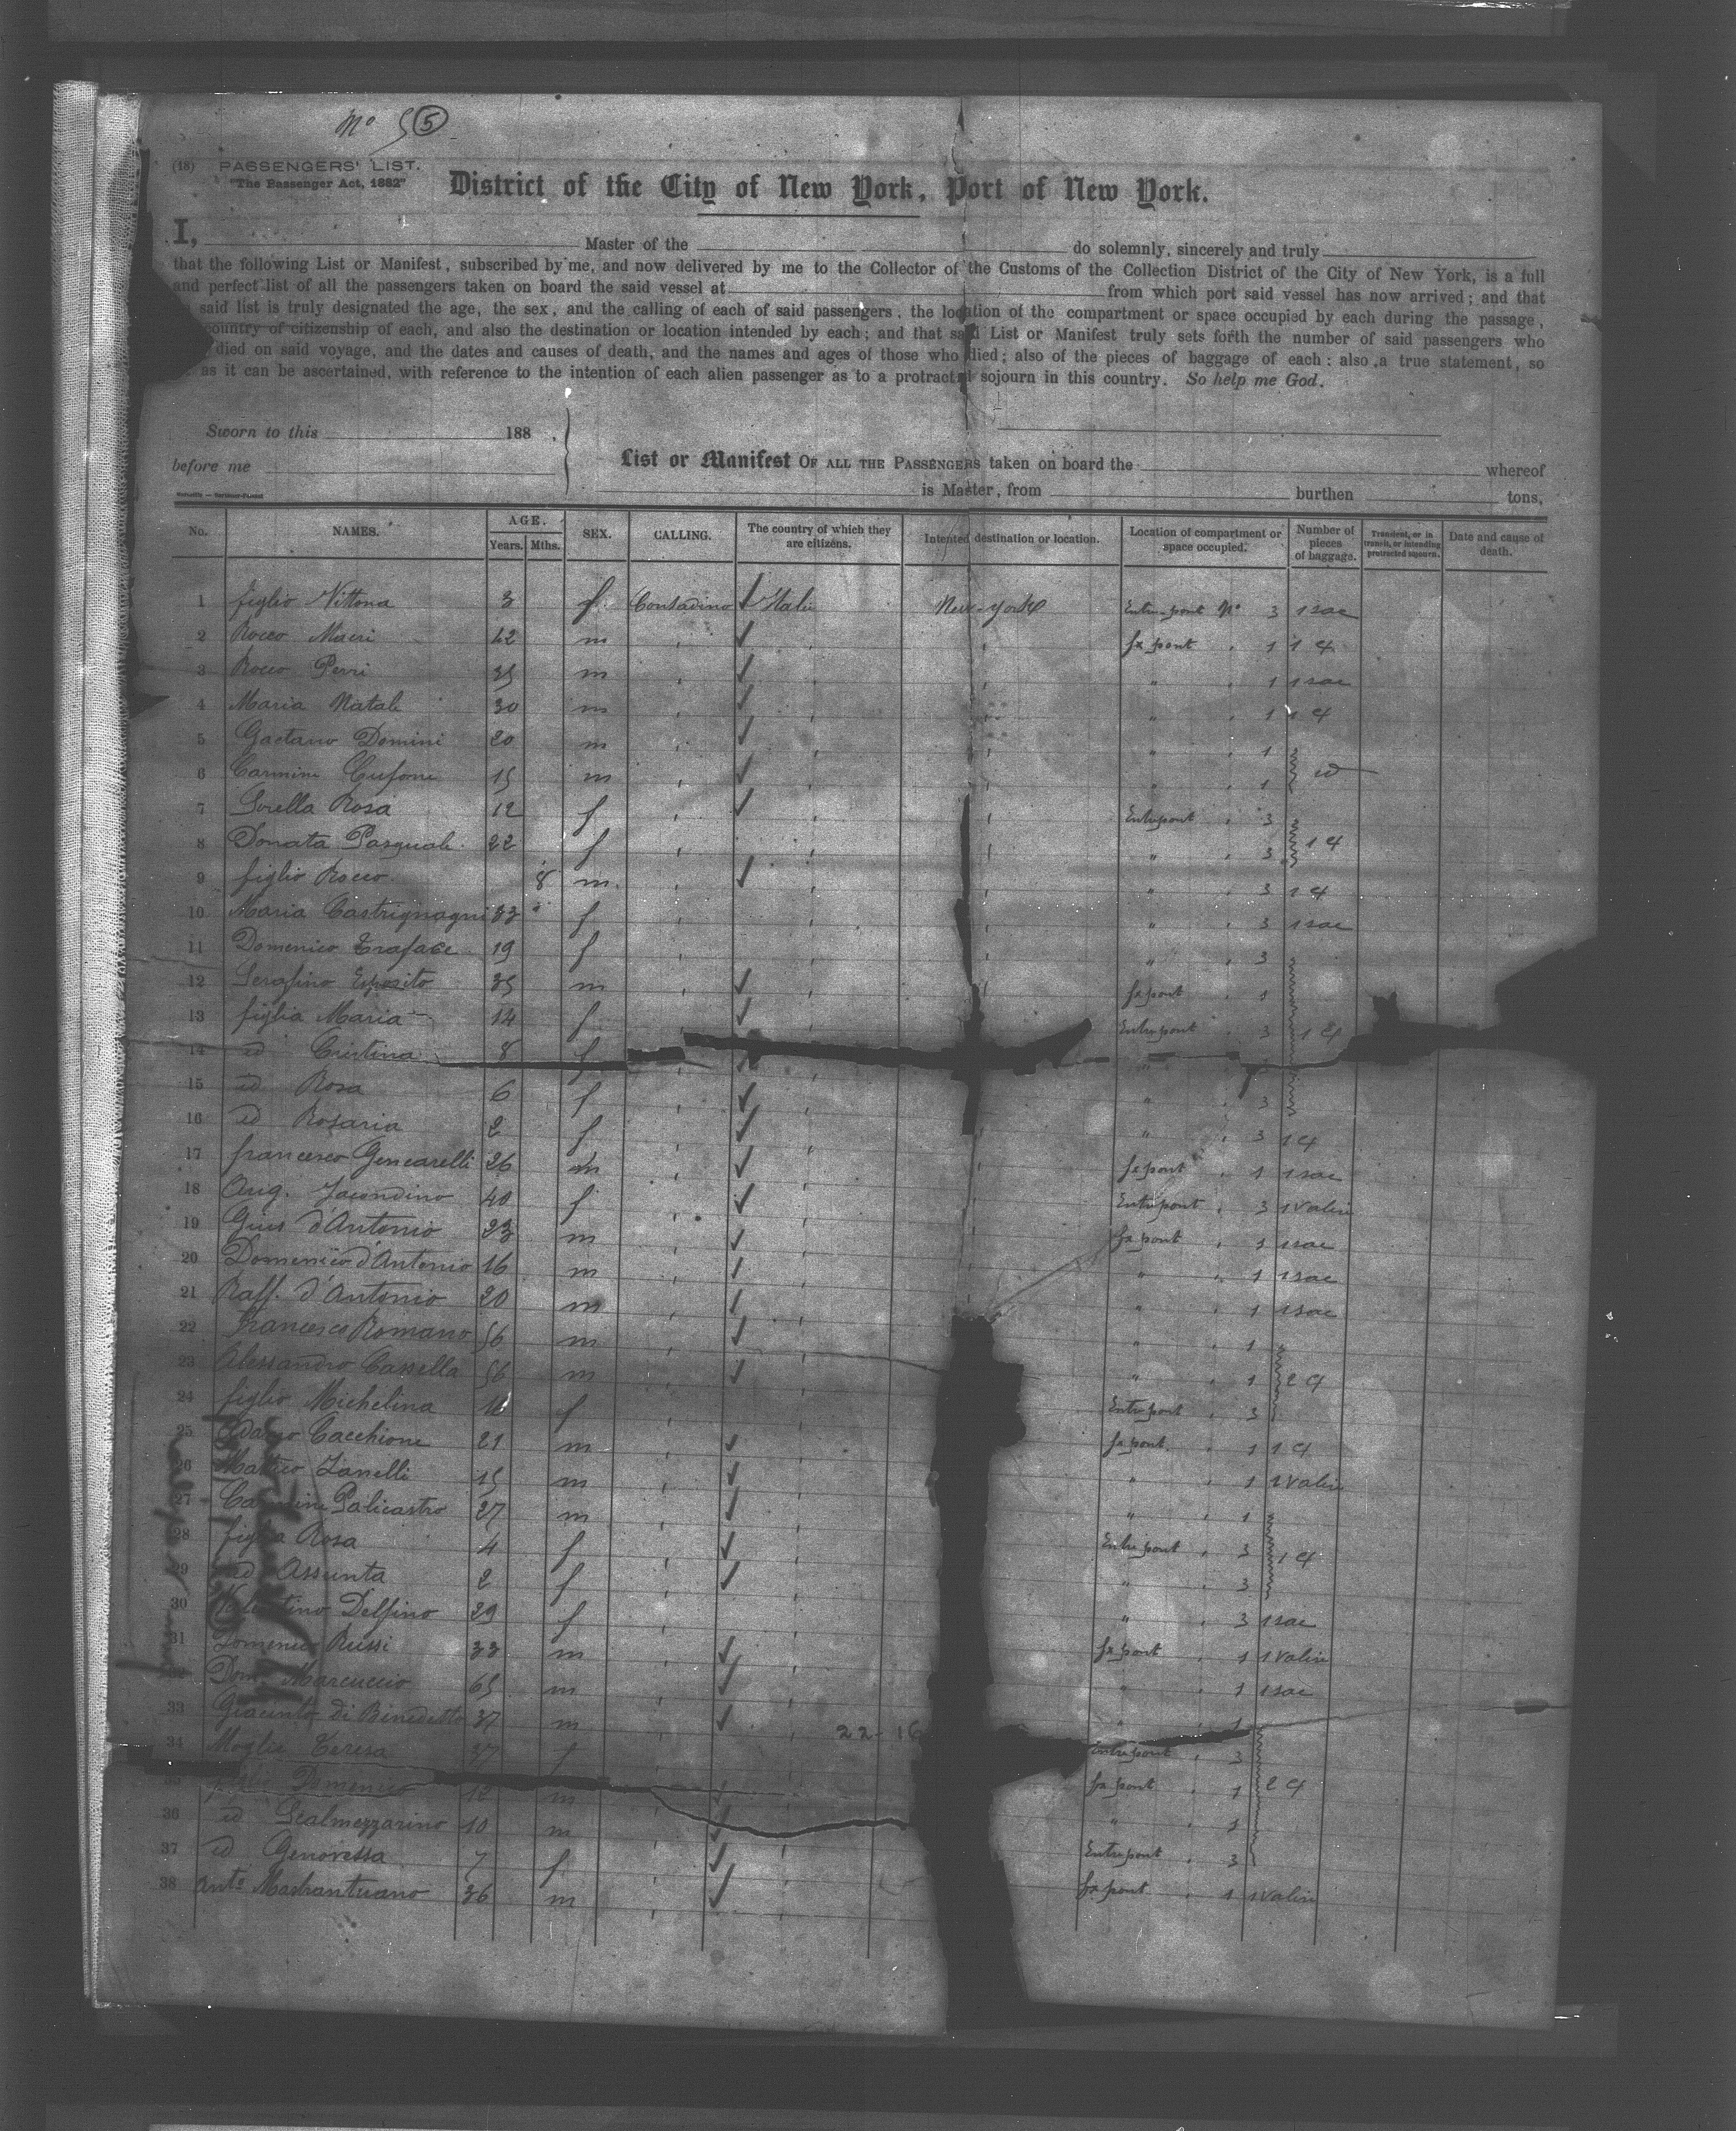 No 5 (5)
(18) PASSENGERS' LIST.
"The Passenger Act, 1882"
District of the City of New York, Port of New York.
I, Master of the do solemnly, sincerely and truly
that the following List or Manifest, subscribed by me, and now delivered by me to the Collector of the Customs of the Collection District of the City of New York, is a full
and perfect list of all the passengers taken on board the said vessel at from which port said vessel has now arrived; and that
said list is truly designated the age, the sex, and the calling of each of said passengers, the location of the compartment or space occupied by each during the passage,
country of citizenship of each, and also the destination or location intended by each; and that said List or Manifest truly sets forth the number of said passengers who
died on said voyage, and the dates and causes of death, and the names and ages of those who died; also of the pieces of baggage of each: also a true statement, so
as it can be ascertained, with reference to the intention of each alien passenger as to a protracted sojourn in this country. So help me God.
Sworn to this 188 .
before me
List or Manifest OF ALL THE PASSENGERS taken on board the whereof
is Master, from burthen tons,
No. NAMES. AGE. Years. Mths. SEX. CALLING. The country of which they are citizens. Intented destination or location. Location of compartment or space occupied. Number of pieces of baggage. Transient, or in transit, or intending protracted sojourn. Date and cause of death.
1 figlio Vittona 3 f Contadino Italie New-york Entre-pont No 3 1 sac
2 Rocco Macri 42 m " " " fx pont " 1 1 cf
3 Rocco Perri 35 m " " " " " 1 1 sac
4 Maria Natale 30 m " " " " " 1 1 cf
5 Gaetano Domini 20 m " " " " " 1
6 Carmine Cufone 15 m " " " " " 1 id
7 Sorella Rosa 12 f " " " Entrepont " 3
8 Donata Pasquale 22 f " " " " " 3 1 cf
9 figlio Rocco 8 m " " " " " 3 1 cf
10 Maria Castrignagni 33 " f " " " " " 3 1 sac
11 Domenico Traface 19 f " " " " " 3
12 Serafino Esposito 35 m " " " fx pont " 1
13 figlia Maria 14 f " " Entrepont " 3 1 cf
14 id Cristina 8 f " "
15 id Rosa 6 f " " " " 3
16 id Rosaria 2 f " " " " " 3 1 cf
17 francesco Gencarelli 26 m " " " fx pont " 1 1 sac
18 Ang. Jacondino 40 f " " " Entrepont " 3 1 valise
19 Gius d'Antonio 23 m " " " fx pont " 1 1 sac
20 Domenico d'Antonio 16 m " " " " 1 1 sac
21 Raff. d'Antonio 20 m " " " " 1 1 sac
22 francesco Romano 56 m " " " " 1
23 Alessandro Cassella 56 m " " " " 1 2 cf
24 figlio Michelina f " " Entrepont " 3
25 Cacchione 21 m " " fx pont " 1 1 cf
26 Matteo Zanelli 15 m " " " " 1 1 valise
27 Carmine Policastro 27 m " " " " 1
28 figlia Rosa 4 f " " Entrepont " 3 1 cf
29 id Assunta 2 f " " " " 3
30 Valentino Delfino 29 f " " " " 3 1 sac
31 Domenico Russi 33 m " " fx pont " 1 1 valise
32 Domo Marcuccio 65 m " " " " 1 1 sac
33 Giacinto di Benedetto 37 m " " 22-16 " 1
34 Moglie Teresa 37 f Entrepont " 3
35 figlio Domenico 12 m " fx pont " 1 2 cf
36 id 10 m " " " 1
37 id Genoressa 7 f " " Entrepont " 3
38 Anto Mastrantuano 36 m " " fx pont " 1 1 valise